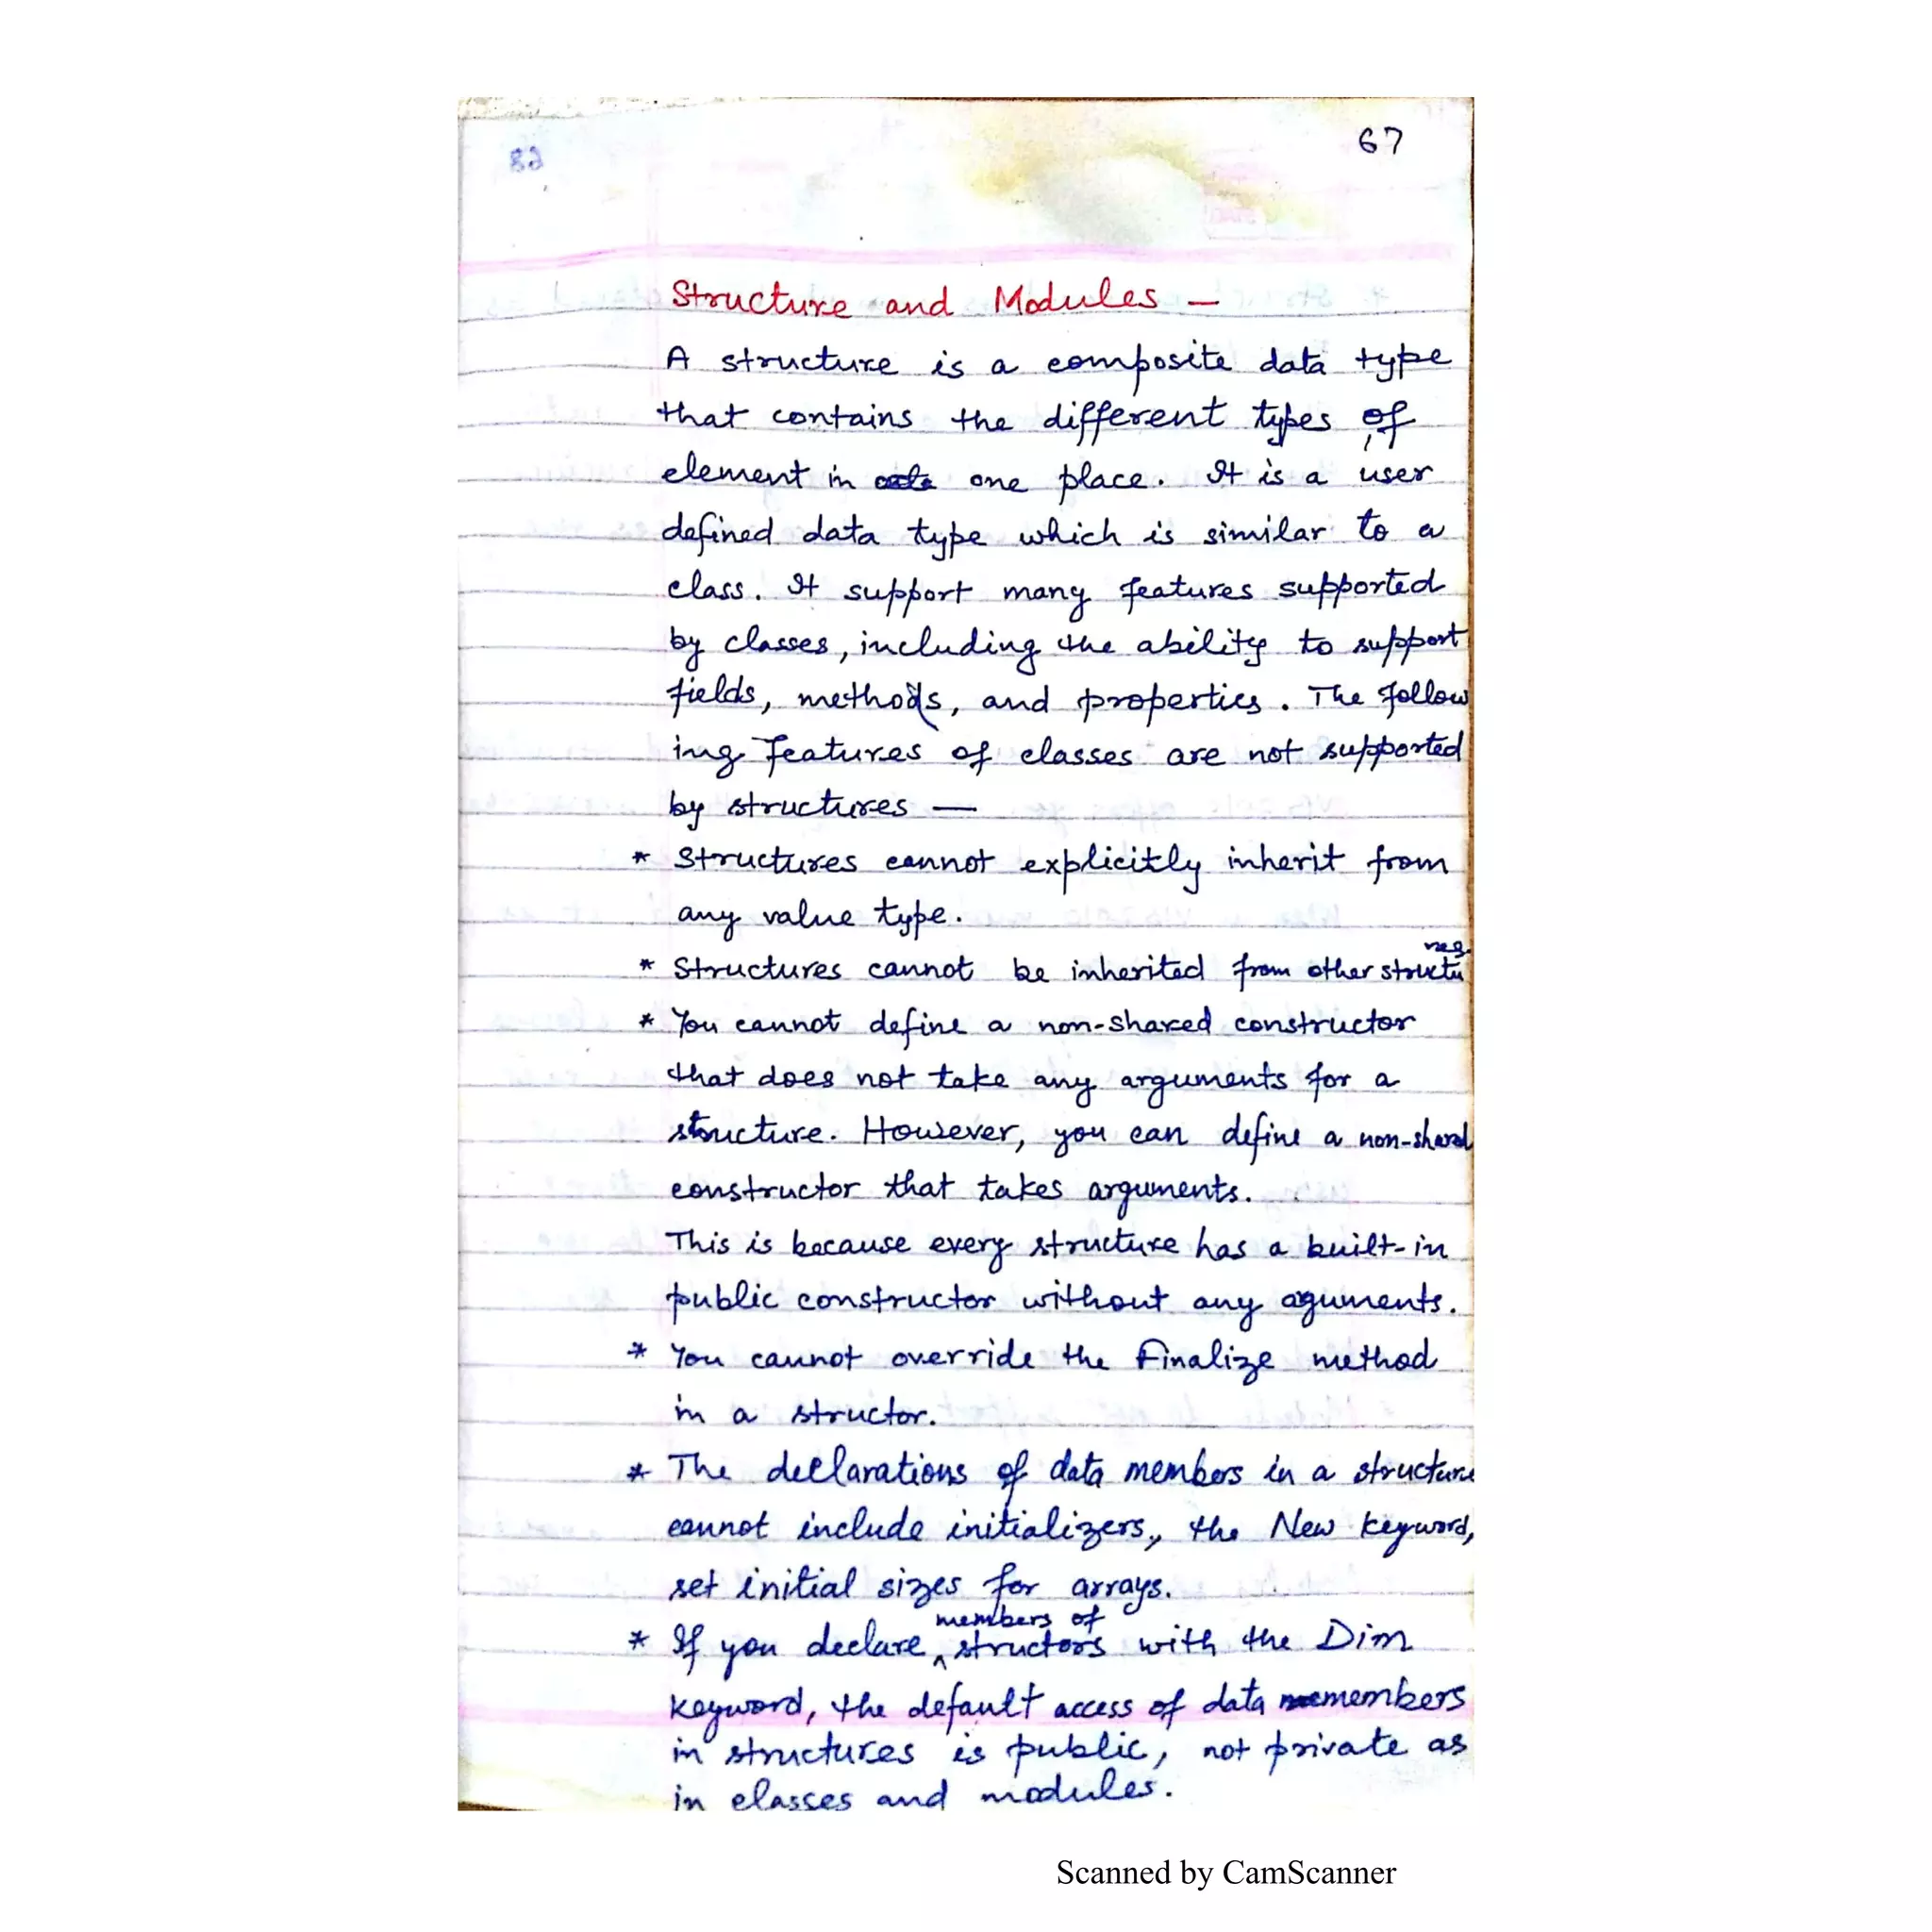 67
Structure and Modules —
A structure is a composite data type
that contains the different types of
element in one place. It is a user
defined data type which is similar to a
class. It support many features supported
by classes, including the ability to support
fields, methods, and properties. The follow
ing features of classes are not supported
by structures —
* Structures cannot explicitly inherit from
any value type.
* Structures cannot be inherited from other structures.
* You cannot define a non-shared constructor
that does not take any arguments for a
structure. However, you can define a non-shared
constructor that takes arguments.
This is because every structure has a built-in
public constructor without any aguments.
* You cannot override the Finalize method
in a structor.
* The declarations of data members in a structure
cannot include initializers, the New keyword,
set initial sizes for arrays.
* If you declare members of structors with the Dim
keyword, the default access of data members
in structures is public, not private as
in classes and modules.
Scanned by CamScanner